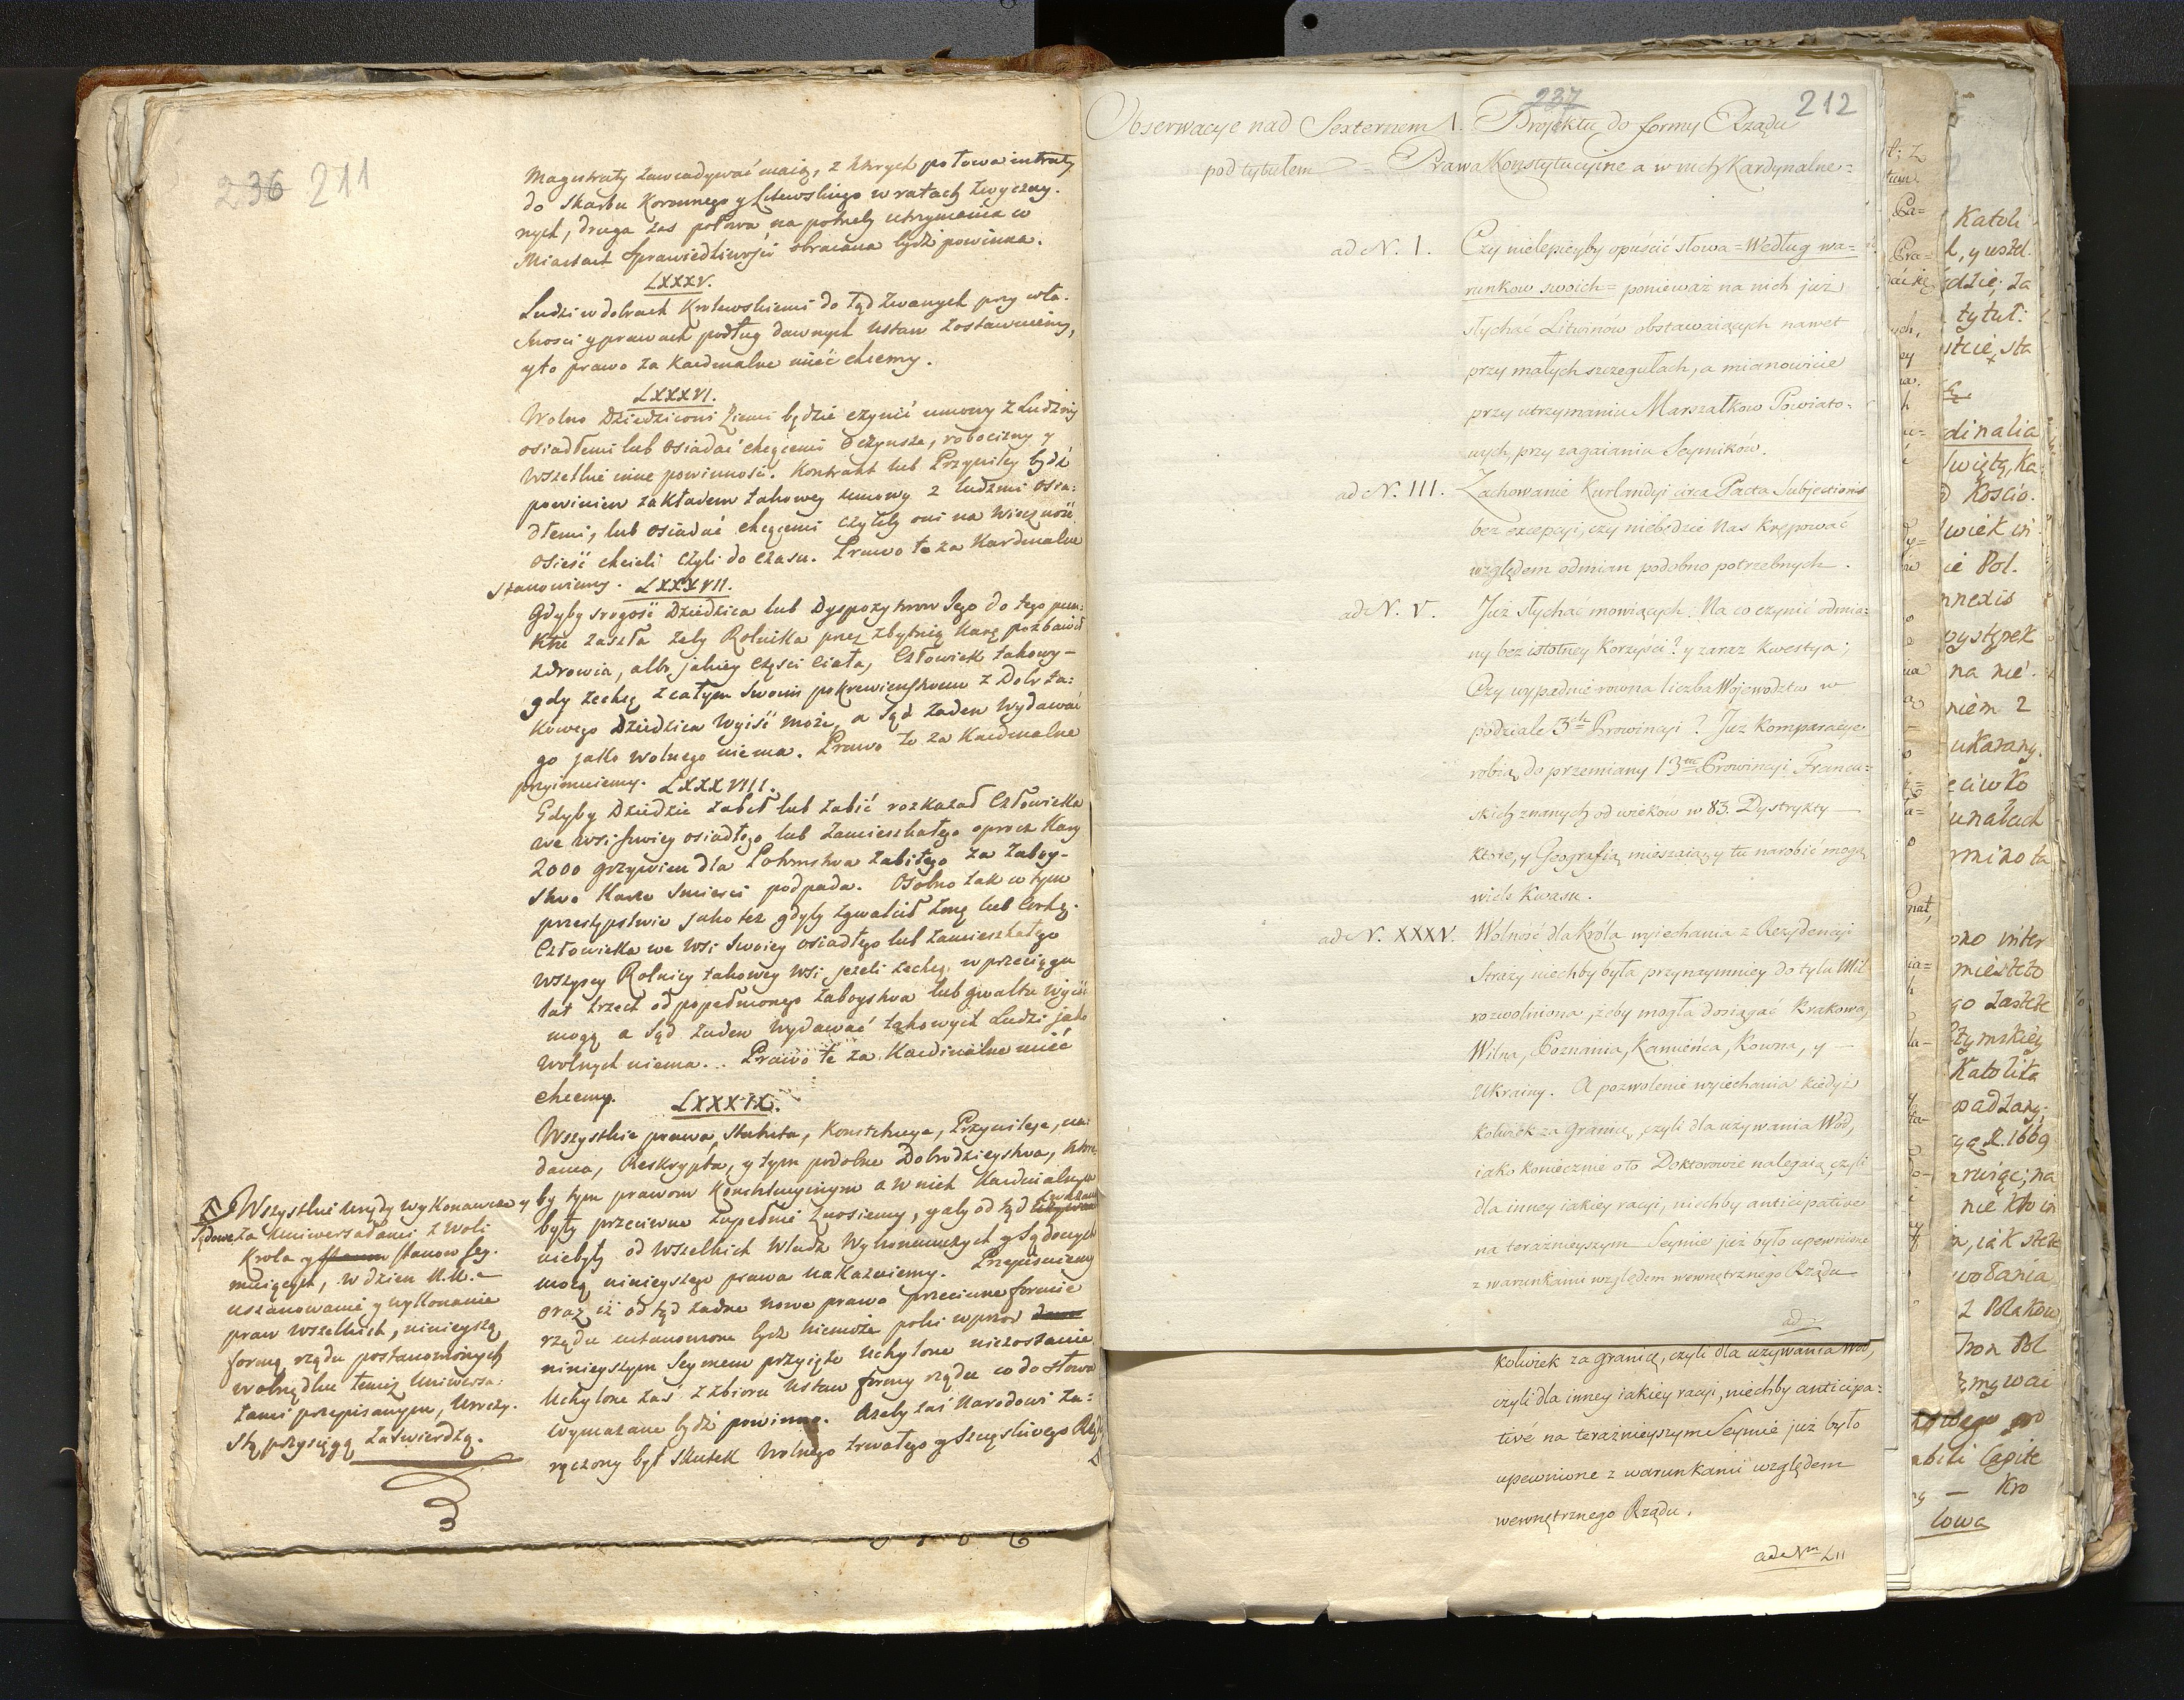 236 211
Magistraty zawiadywać maią, z ktorych połowa intraty
do Skarbu Koronnego y Litewskiego w ratach zwyczay-
nych, druga zas połowa na potrzeby utrzymania w
Miastach Sprawiedliwości obracana bydź powinna.
LXXXV.
Ludzi w dobrach Krolewskiemi do tąd zwanych przy wła-
sności y prawach podług dawnych Ustaw zostawuiemy,
y to prawo za Kardynalne mieć chcemy.
LXXXVI.
Wolno Dziedzicowi Ziemi będzie czynić umowy z Ludźmi
osiadłemi lub osiadać chcącemi o czynsze, robocizny y
wszelkie inne powinności. Kontrakt lub Przywiley bydź
powinien zakładem takowey umowy z ludzmi osia-
dłemi, lub osiadać chcącemi czyliby oni na wieczność
osieść chcieli czyli do czasu. Prawo to za Kardynalne
stanowiemy. LXXXVII.
Gdyby srogość Dziedzica lub Dyspozytorow Jego do tego pun-
ktu zaszła żeby Rolnika przez zbytnią karę pozbawił
zdrowia, albo jakiey części ciała, Człowiek takowy
gdy zechcę z całym swoim pokrewieństwem z Dobr ta-
kowego Dziedzica wyiść może, a Sąd żaden wydawać
go jako wolnego niema. Prawo to za Kardynalne
przyimuiemy. LXXXVIII.
Gdyby Dziedzic zabił lub zabić rozkazał Człowieka
we wsi swoiey osiadłego lub zamieszkałego oprocz kary
2000 grzywien dla Potomstwa zabitego za zaboy-
stwo karze smierci podpada. Osobno zaś w tym
przestępstwie jako też gdyby zgwałcił żonę lub corkę
Człowieka we wsi swoiey osiadłego lub zamieszkałego
wszyscy Rolnicy takowey wsi jeżeli zechcą w przeciągu
lat trzech od popełnionego zaboystwa lub gwałtu wyiść
mogą a Sąd żaden wydawać takowych Ludzi jako
wolnych niema. Prawo te za Kardinalne mieć
chcemy. LXXXIX.
Wszystkie prawa, Statuta, Konstytucye, Przywileje, na-
dania, Reskrypta, y tym podobne Dobrodzieystwa, ktore
by tym prawom Konstytucyinym a w nich Kardinalnym
były przeciwne zupełnie znosiemy, y aby od tąd
niebyły od wszelkich Władz Wykonawczych y Sądowych
mocą ninieyszego prawa nakazuiemy. Przepisuiemy
oraz iż od tąd żadne nowe prawo przeciwne formie
rządu ustanowione bydź niemoże poki wprzod
ninieyszym Seymem przyięte uchylone niezostanie
Uchylone zaś z zbioru Ustaw formy rządu co do słowa
wymazane bydź powinno. Ażeby zaś Narodowi za-
ręczony był skutek wolnego trwałego y szczęśliwego Rządu
Wszystkie urzędy wykonawcze y
Sądowe za Uniwersałami z woli
Krola y Stanow Sey-
muiących, w dzien N.N.
uszanowanie y wykonanie
praw wszelkich, ninieyszą
formą rządu postanowionych
według temiż Uniwersa-
łami przepisanym, uroczy-
stą przysięgą zatwierdzą.
237 212
Obserwacye nad Sexternem 1. Projektu do formy Rządu
pod tytułem = Prawa Konstytucyine a w nich Kardynalne =
ad N. I. Czy nielepieyby opuścić słowa = Według wa=
runkow swoich = ponieważ na nich już
słychać Litwinów obstawaiących nawet
przy małych szczegułach, a mianowicie
przy utrzymaniu Marszałkow Powiato=
wych, przy zagaianiu Seymików.
ad N. III. Zachowanie Kurlandyi circa Pacta Subjectionis
bez excepcyi, czy niebędzie Nas krępować
względem odmian podobno potrzebnych.
ad N. V. Już słychać mowiących. Na co czynić odmia=
ny bez istotney korzyści? y zaraz kwestya;
Czy wypadnie rowna liczba Wojewodztw w
podziale 3ch Prowincyi? Już komparacye
robią do przemiany 13tu Prowincyi Francu=
skich znanych od wieków w 83. Dystrykty
ktore, y Geografią mieszaią, y tu narobić mogą
wiele kwasu.
ad N. XXXV. Wolność dla Króla wyiechania z Rezydencyi
Straży niechby była przynaymniey do tylu Mil
rozwolniona, żeby mogła dosiągać Krakowa,
Wilna, Poznania, Kamieńca, Kowna, y
Ukrainy. A pozwolenie wyiechania kiedyż
kolwiek za granicę, czyli dla używania Wód,
iako koniecznie o to Doktorowie nalegaią, czyli
dla inney iakiey racyi, niechby anticipative
na teraźnieyszym Seymie już było upewnione
z warunkami względem wewnętrznego Rządu
ad
kolwiek za granicę, czyli dla używania Wód,
czyli dla inney iakiey racyi, niechby anticipa=
tivé na teraźnieyszym Seymie już było
upewnione z warunkami względem
wewnętrznego Rządu.
ad Nm LII
Katoli
tytuł:
dinalia
ie Pol.
nnexis
na nie
niem 2
ukarany.
unałach
Katolika
R. 1669
wołania
z Polakow
Tron Pol
abili Capite
Kro
lowa